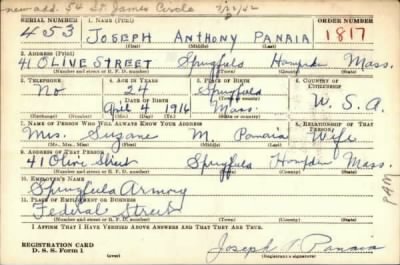 new add. 54 St. James Circle 7/22/42
SERIAL NUMBER 1. NAME (PRINT) ORDER NUMBER
453 JOSEPH ANTHONY PANAIA 1817
(First) (Middle) (Last)
2. ADDRESS (PRINT)
41 OLIVE STREET Springfield Hampden Mass.
(Number and street or R. F. D. number) (Town) (County) (State)
3. TELEPHONE 4. AGE IN YEARS 5. PLACE OF BIRTH 6. COUNTRY OF CITIZENSHIP
No 24 Springfield
DATE OF BIRTH
April 4 1916 Mass. U. S. A.
(Mo.) (Day) (Yr.) (State or country)
7. NAME OF PERSON WHO WILL ALWAYS KNOW YOUR ADDRESS 8. RELATIONSHIP OF THAT PERSON
Mrs. Suzane M. Panaia Wife
(Mr., Mrs., Miss) (First) (Middle) (Last)
9. ADDRESS OF THAT PERSON
41 Olive Street Springfield Hampden Mass.
(Number and street or R. F. D. number) (Town) (County) (State)
10. EMPLOYER'S NAME
Springfield Armory
11. PLACE OF EMPLOYMENT OR BUSINESS
Federal Street
(Number and street or R. F. D. number) (Town) (County) (State)
I AFFIRM THAT I HAVE VERIFIED ABOVE ANSWERS AND THAT THEY ARE TRUE.
REGISTRATION CARD
D. S. S. Form 1 Joseph A Panaia
(Registrant's signature)
PAM